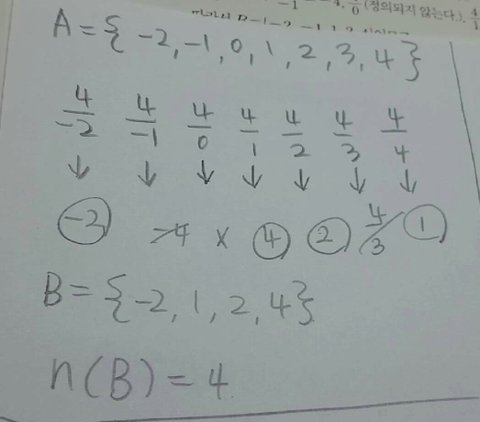 -1 4, 0 (정의되지 않는다.), 4/3
A={ -2, -1, 0, 1, 2, 3, 4 }
4/-2 4/-1 4/0 4/1 4/2 4/3 4/4
↓ ↓ ↓ ↓ ↓ ↓ ↓
-2 -4 × 4 2 4/3 1
B={-2, 1, 2, 4}
n(B)=4